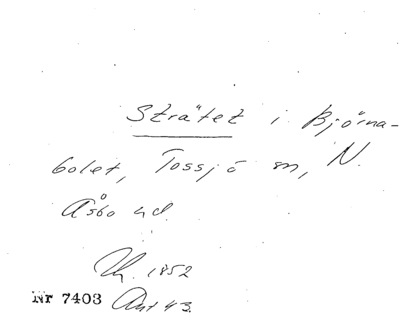 Strätet i Björna-
bolet, Tossjö sn, N.
Åsbo hd.
1852
Nr 7403 Ant 43.